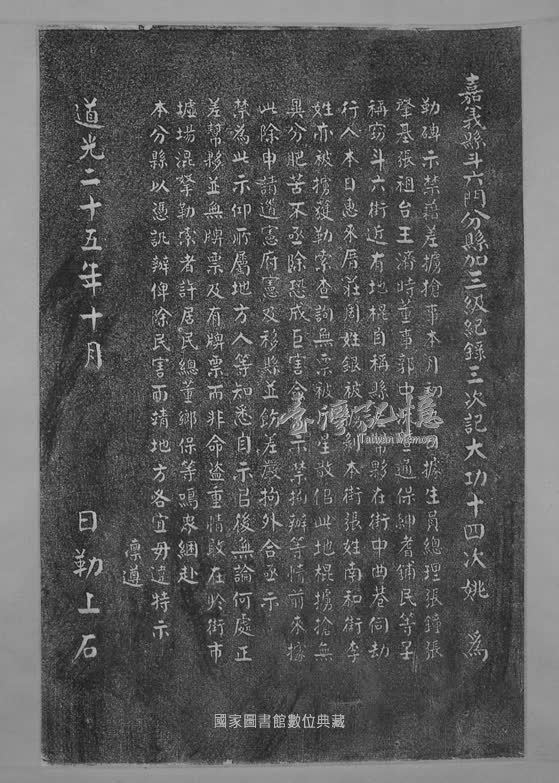 嘉義縣斗六門分縣加三級紀錄三次記大功十四次姚 為
勒碑示禁藉差擄搶事本月初 據生員總理張鐘張
肇基張祖台王濟時董事郭中 通保紳耆舖民等子
稱竊斗六街近有地棍自稱縣 幫夥在街中曲巷伺劫
行人本日惠來厝莊周姓銀被 本街張姓南和街李
姓亦被擄獲勒索查詢無票被 星散但此地棍擄搶無
與分肥苦不 除恐成巨害合 示禁拘辦等情前來據
此除申請道憲府憲及移縣並飭差嚴拘外合亟示
禁為此示仰所屬地方人等知悉自示后後無論何處正
差幫夥並無牌票及有牌票而非命盜重情敢在於街市
墟場混拏勒索者許居民總董鄉保等鳴眾綑赴
本分縣以憑訊辦俾除民害而靖地方各宜毋違特示
凜遵
道光二十五年十月 日勒上石
臺灣記憶
Taiwan Memory
國家圖書館數位典藏